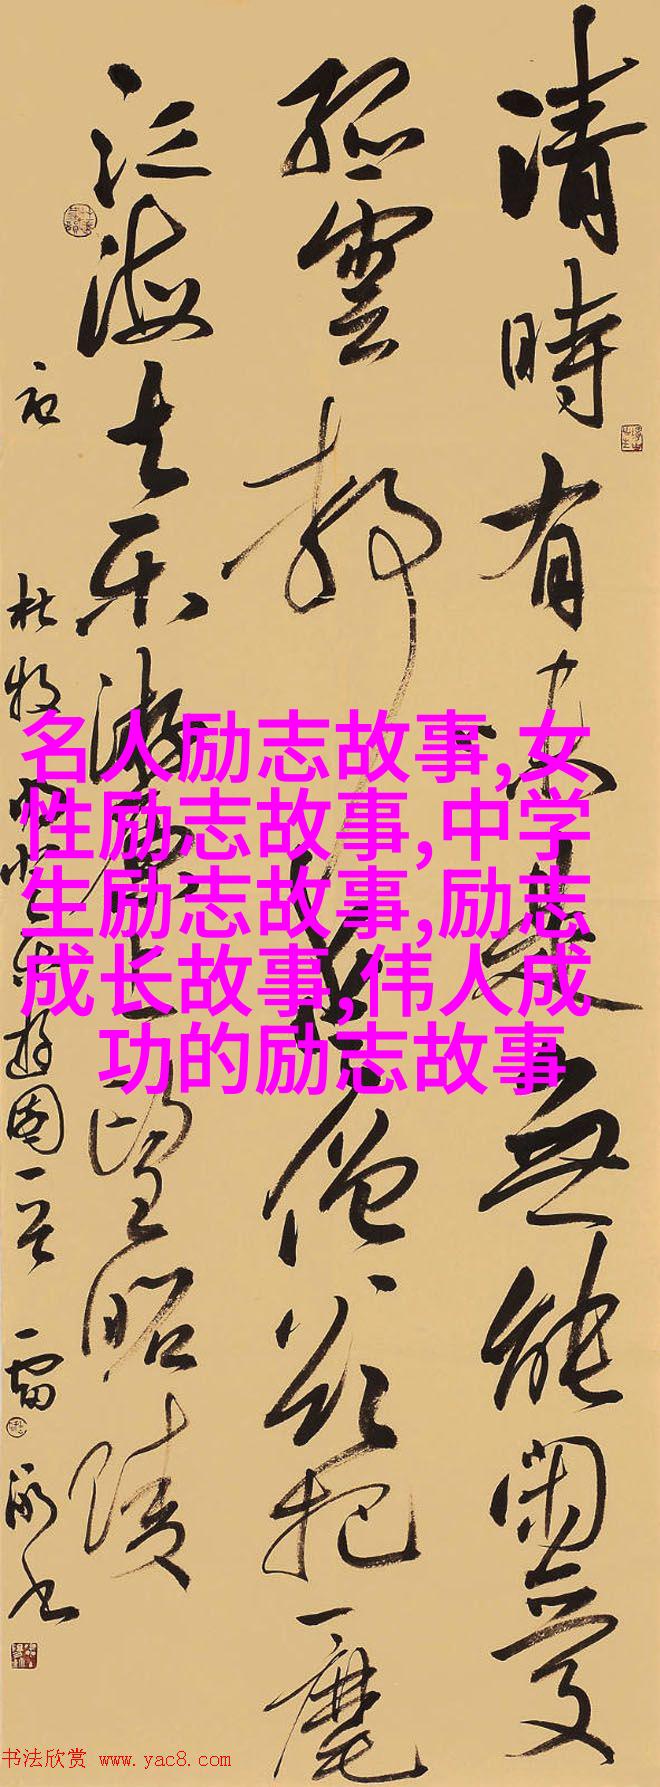 清時有味是無能閑愛
孤雲静愛僧欲把一麾
江海去乐游原上望昭陵
杜牧
名人励志故事,女
性励志故事,中学
生励志故事,励志
成长故事,伟人成
功的励志故事
书法欣赏 www.yac8.com